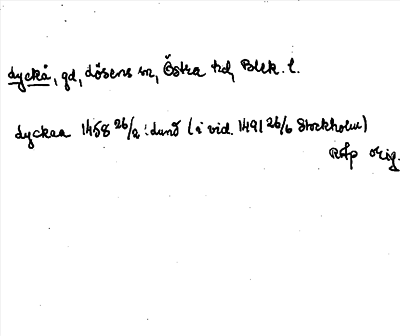 dyckå, gd, Lösens sn, Östra hd, Blek. l.
dyckaa 1458 26/2 Lund (i vid. 1491 26/6 Stockholm)
RAp orig.